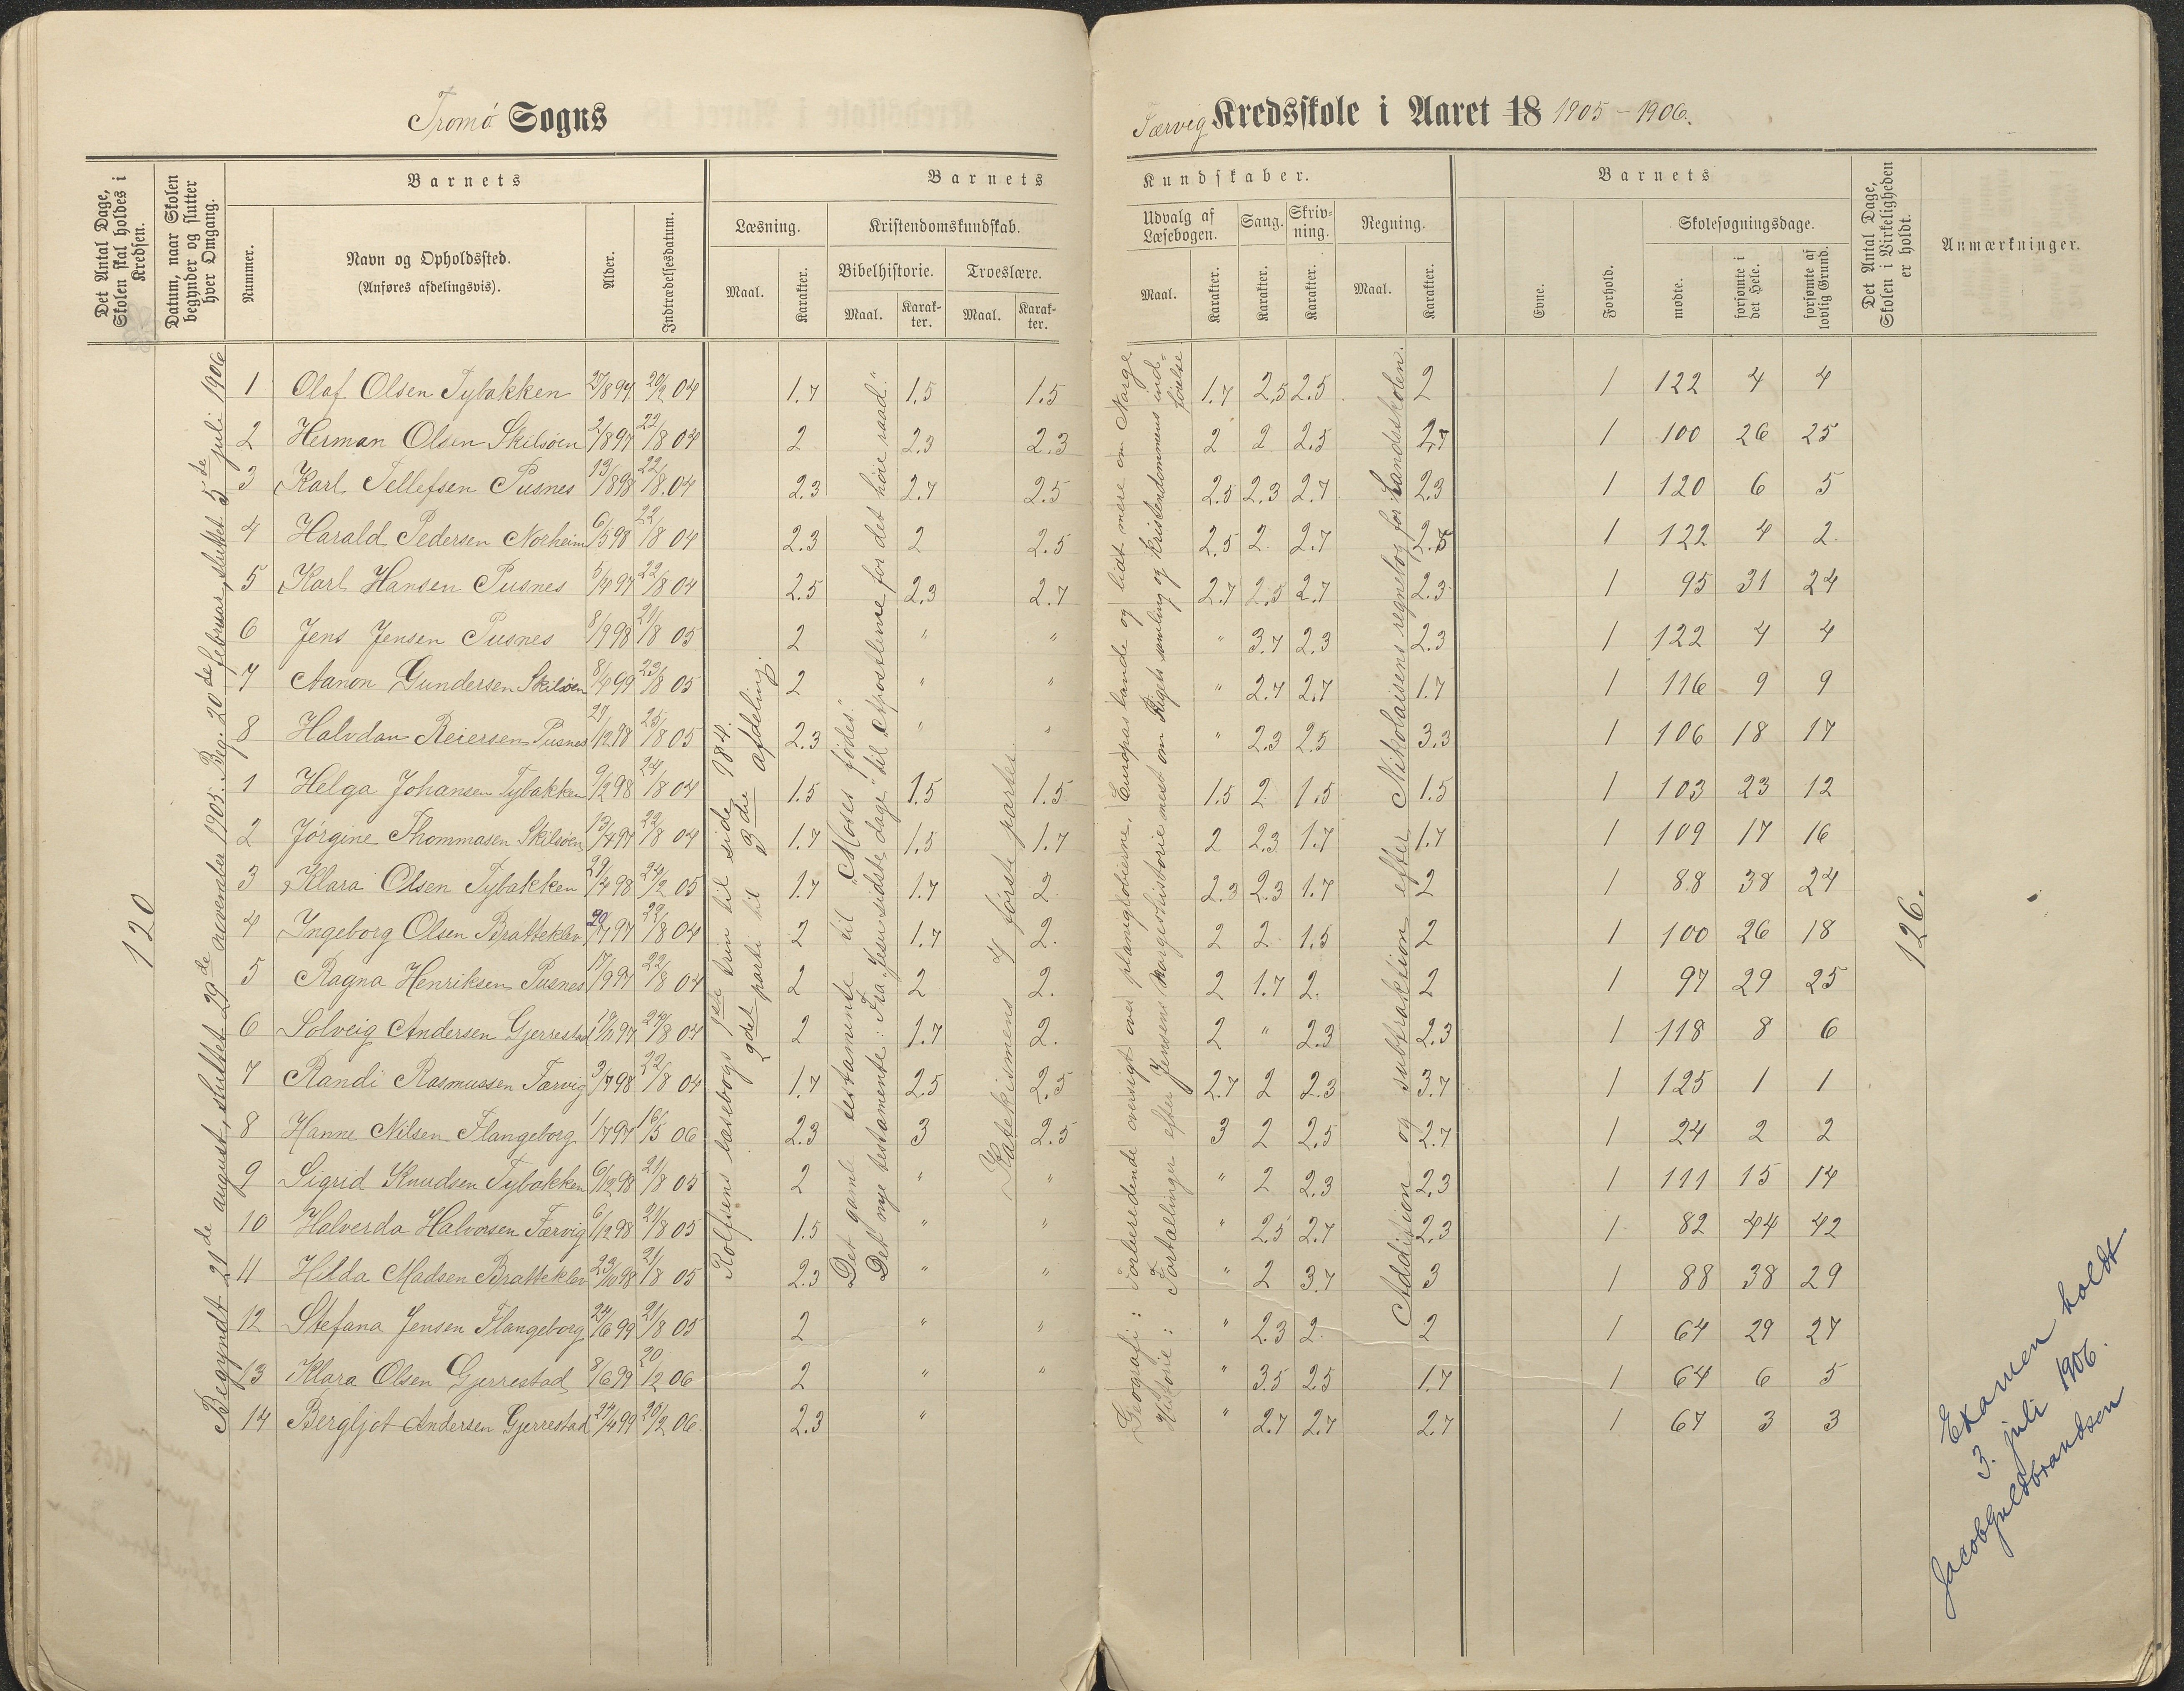 Tromö Sogns
Færvig Kredsskole i Aaret 18 1905-1906.
Det Antal Dage, Skolen skal holdes i Kredsen.
Datum, naar Skolen begynder og slutter hver Omgang.
Barnets
Nummer.
Navn og Opholdssted.
(Anføres afdelingsvis).
Alder.
Indtrædelsesdatum.
Barnets
Læsning.
Maal.
Karakter.
Kristendomskundskab.
Bibelhistorie.
Maal.
Karakter.
Troeslære.
Maal.
Karakter.
Kundskaber.
Udvalg af Læsebogen.
Maal.
Karakter.
Sang.
Karakter.
Skrivning.
Karakter.
Regning.
Maal.
Karakter.
Barnets
Evne.
Forhold.
Skolesøgningsdage.
mødte.
forsømte i det Hele.
forsømte af lovlig Grund.
Det Antal Dage, Skolen i Virkeligheden er holdt.
Anmærkninger.
120
Begyndt 21de august, sluttet 29de november 1905. Beg. 20de februar, sluttet 5de juli 1906
Rolfsens læsebogs 1ste trin til side 184.
2det parti til 3die afdeling.
Det gamle testamente til "Moses fødes."
Det nye testamente: Fra "Jesu sidste dage" til "Apostlene for det høie raad."
Katekismens 4 første parter
Geografi: Forberedende oversigt over planigloberne, Europas lande og lidt mere om Norge
Historie: Fortællinger efter Jensens Norgeshistorie mest om Rigets samling og kristendommens indførelse
Addition og subtraktion efter Nikolaisens regnebog for Landsskolen.
1 Olaf Olsen Tybakken 27/8 97 20/2 04 1.7 1.5 1.5 1.7 2.5 2.5 2 1 122 4 4
2 Herman Olsen Skilsøen 2/8 97 22/8 04 2 2.3 2.3 2 2 2.5 2.7 1 100 26 25
3 Karl Tellefsen Pusnes 13/8 98 22/8 04 2.3 2.7 2.5 2.5 2.3 2.7 2.3 1 120 6 5
4 Harald Pedersen Norheim 6/5 98 22/8 04 2.3 2 2.5 2.5 2 2.7 2.5 1 122 4 2
5 Karl Hansen Pusnes 5/4 97 22/8 04 2.5 2.3 2.7 2.7 2.5 2.7 2.3 1 95 31 24
6 Jens Jensen Pusnes 8/9 98 21/8 05 2 " " " 3.7 2.3 2.3 1 122 4 4
7 Aanon Gundersen Skilsøen 8/4 99 23/8 05 2 " " " 2.7 2.7 1.7 1 116 9 9
8 Halvdan Reiersen Pusnes 27/12 98 25/8 05 2.3 " " " 2.3 2.5 3.3 1 106 18 17
1 Helga Johansen Tybakken 9/2 98 24/8 04 1.5 1.5 1.5 1.5 2 1.5 1.5 1 103 23 12
2 Jørgine Thommasen Skilsøen 13/4 97 22/8 04 1.7 1.5 1.7 2 2.3 1.7 1.7 1 109 17 16
3 Klara Olsen Tybakken 29/4 98 24/2 05 1.7 1.7 2 2.3 2.3 1.7 2 1 88 38 24
4 Ingeborg Olsen Bratteklev 20/7 97 22/8 04 2 1.7 2. 2 2 1.5 2 1 100 26 18
5 Ragna Henriksen Pusnes 17/9 97 22/8 04 2 2 2. 2 1.7 2. 2 1 97 29 25
6 Solveig Andersen Gjerrestad 19/11 97 24/8 04 2 1.7 2. 2 " 2.3 2.3 1 118 8 6
7 Randi Rasmussen Færvig 3/7 98 22/8 04 1.7 2.5 2.5 2.7 2 2.3 3.7 1 125 1 1
8 Hanne Nilsen Flangeborg 1/7 97 16/5 06 2.3 3 2.5 3 2 2.5 2.7 1 24 2 2
9 Sigrid Knudsen Tybakken 6/12 98 21/8 05 2 " " " 2 2.3 2.3 1 111 15 14
10 Halverda Halvorsen Færvig 6/12 98 21/8 05 1.5 " " " 2.5 2.7 2.3 1 82 44 42
11 Hilda Madsen Bratteklev 23/10 98 21/8 05 2.3 " " " 2 3.7 3 1 88 38 29
12 Stefana Jensen Flangeborg 24/6 99 21/8 05 2 " " " 2.3 2. 2 1 64 29 27
13 Klara Olsen Gjerrestad 8/6 99 20/2 06 2 " " " 3.5 2.5 1.7 1 64 6 5
14 Bergljot Andersen Gjerrestad 24/4 99 20/2 06. 2.3 " " 2.7 2.7 2.7 1 67 3 3
126.
Examen holdt
3. juli 1906.
Jacob Guldbrandsen